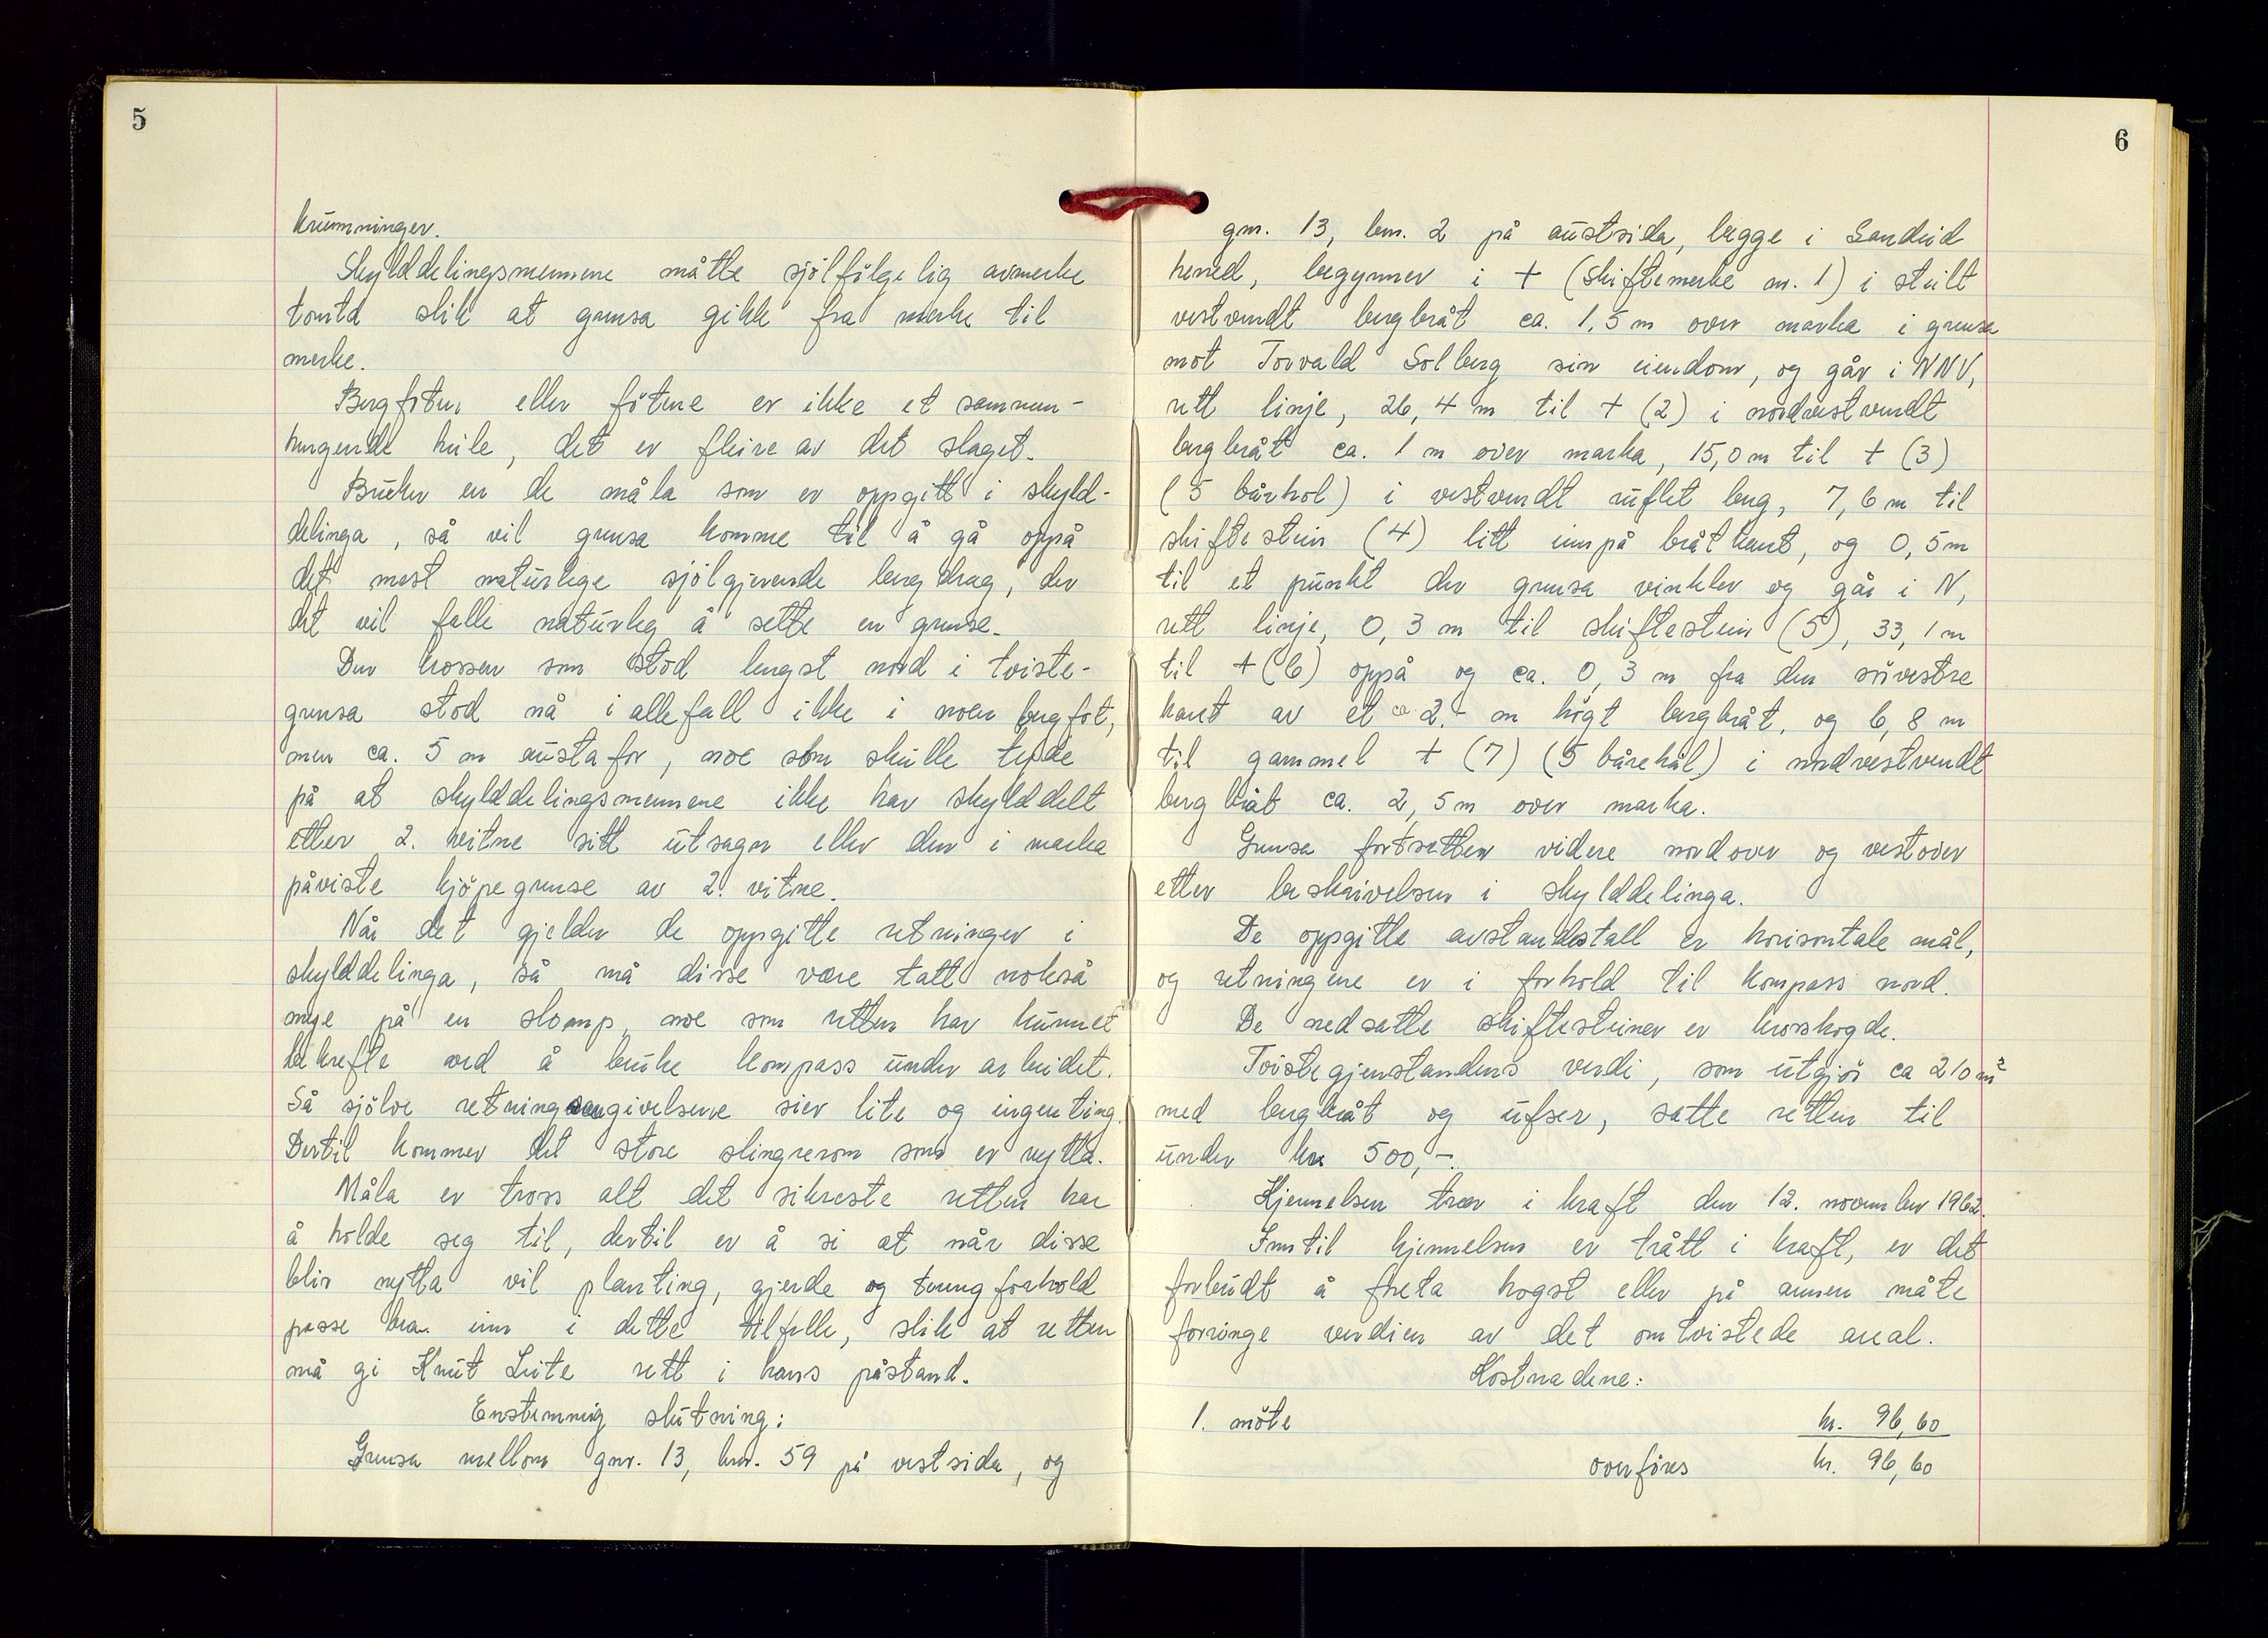 5
krumninger.
Skylddelingsmennene måtte sjölfölgelig avmerke
tomta slik at grensa gikk fra merke til
merke.
Bergfoten eller fötene er ikke et sammen-
hengende hele, det er fleire av det slaget.
Bruker en de måla som er oppgitt i skyld-
delinga, så vil grensa komme til å gå oppå
det mest naturlege sjölgjevende bergdrag, der
det vil falle naturleg å sette en grense.
Den krossen som stod lengst nord i tviste-
grensa stod nå i allefall ikke i noen bergfot,
men ca. 5 m austafor, noe som skulle tyde
på at skylddelingsmennene ikke har skylddelt
etter 2. vitne sitt utsagn eller den i marka
påviste kjöpegrense av 2. vitne.
Når det gjelder de oppgitte retninger i
skylddelinga, så må disse være tatt nokså
mye på en slomp, noe som retten har kunnet
bekrefte ved å bruke kompass under arbeidet.
Så sjölve retningsangivelsene sier lite og ingenting.
Dertil kommer det store slingrerom som er nytta.
Måla er tross alt det sikreste retten har
å holde seg til, dertil er å si at når disse
blir nytta vil planting, gjerde og terrengforhold
passe bra inn i dette tilfelle, slik at retten
må gi Knut Leite rett i hans påstand.
Enstemmig slutning:
Grensa mellom gnr. 13, bnr. 59 på vestsida, og
6
gnr. 13, bnr. 2 på austsida, begge i Sandeid
herred, begynner i + (skiftemerke nr. 1) i steilt
vestvendt bergbråt ca. 1,5 m over marka i grensa
mot Torvald Solberg sin eiendom, og går i NNV,
rett linje, 26,4 m til + (2) i nordvestvendt
bergbråt ca. 1 m over marka, 15,0 m til + (3)
(5 bårhol) i vestvendt uflet berg, 7,6 m til
skiftestein (4) litt innpå bråtkant, og 0,5 m
til et punkt der grensa vinkler og går i N,
rett linje, 0,3 m til skiftestein (5), 33,1 m
til + (6) oppå og ca. 0,3 m fra den sörvestre
kant av et ca. 2.- m högt bergbråt, og 6,8 m
til gammel + (7) (5 bårehål) i nordvestvendt
bergbråt ca. 2,5 m over marka.
Grensa fortsetter videre nordover og vestover
etter beskrivelsen i skylddelinga.
De oppgitte avstandstall er horisontale mål,
og retningene er i forhold til kompass nord.
De nedsatte skiftesteiner er krosshogde.
Tvistegjenstandens verdi, som utgjör ca 210 m²
med bergbråt og ufser, satte retten til
under kr 500,-.
Kjennelsen trer i kraft den 12. november 1962.
Inntil kjennelsen er trått i kraft, er det
forbudt å foreta hogst eller på annen måte
forringe verdien av det omtvistede areal.
Kostnadene:
1. möte kr. 96,60
overföres kr. 96,60